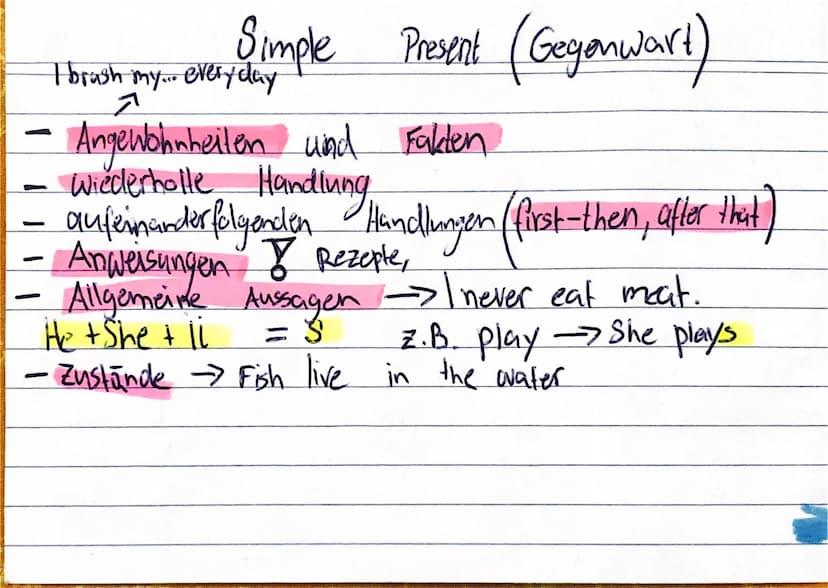 Simple Present (Gegenwart)
I brush my... everyday
- Angewohnheiten und Fakten
- Wiederholte Handlung
- aufeinanderfolgenden Handlungen (first-then, after that)
- Anweisungen ! Rezepte,
- Allgemeine Aussagen → I never eat meat.
He + She + it = S z.B. play → She plays
- Zustände → Fish live in the water